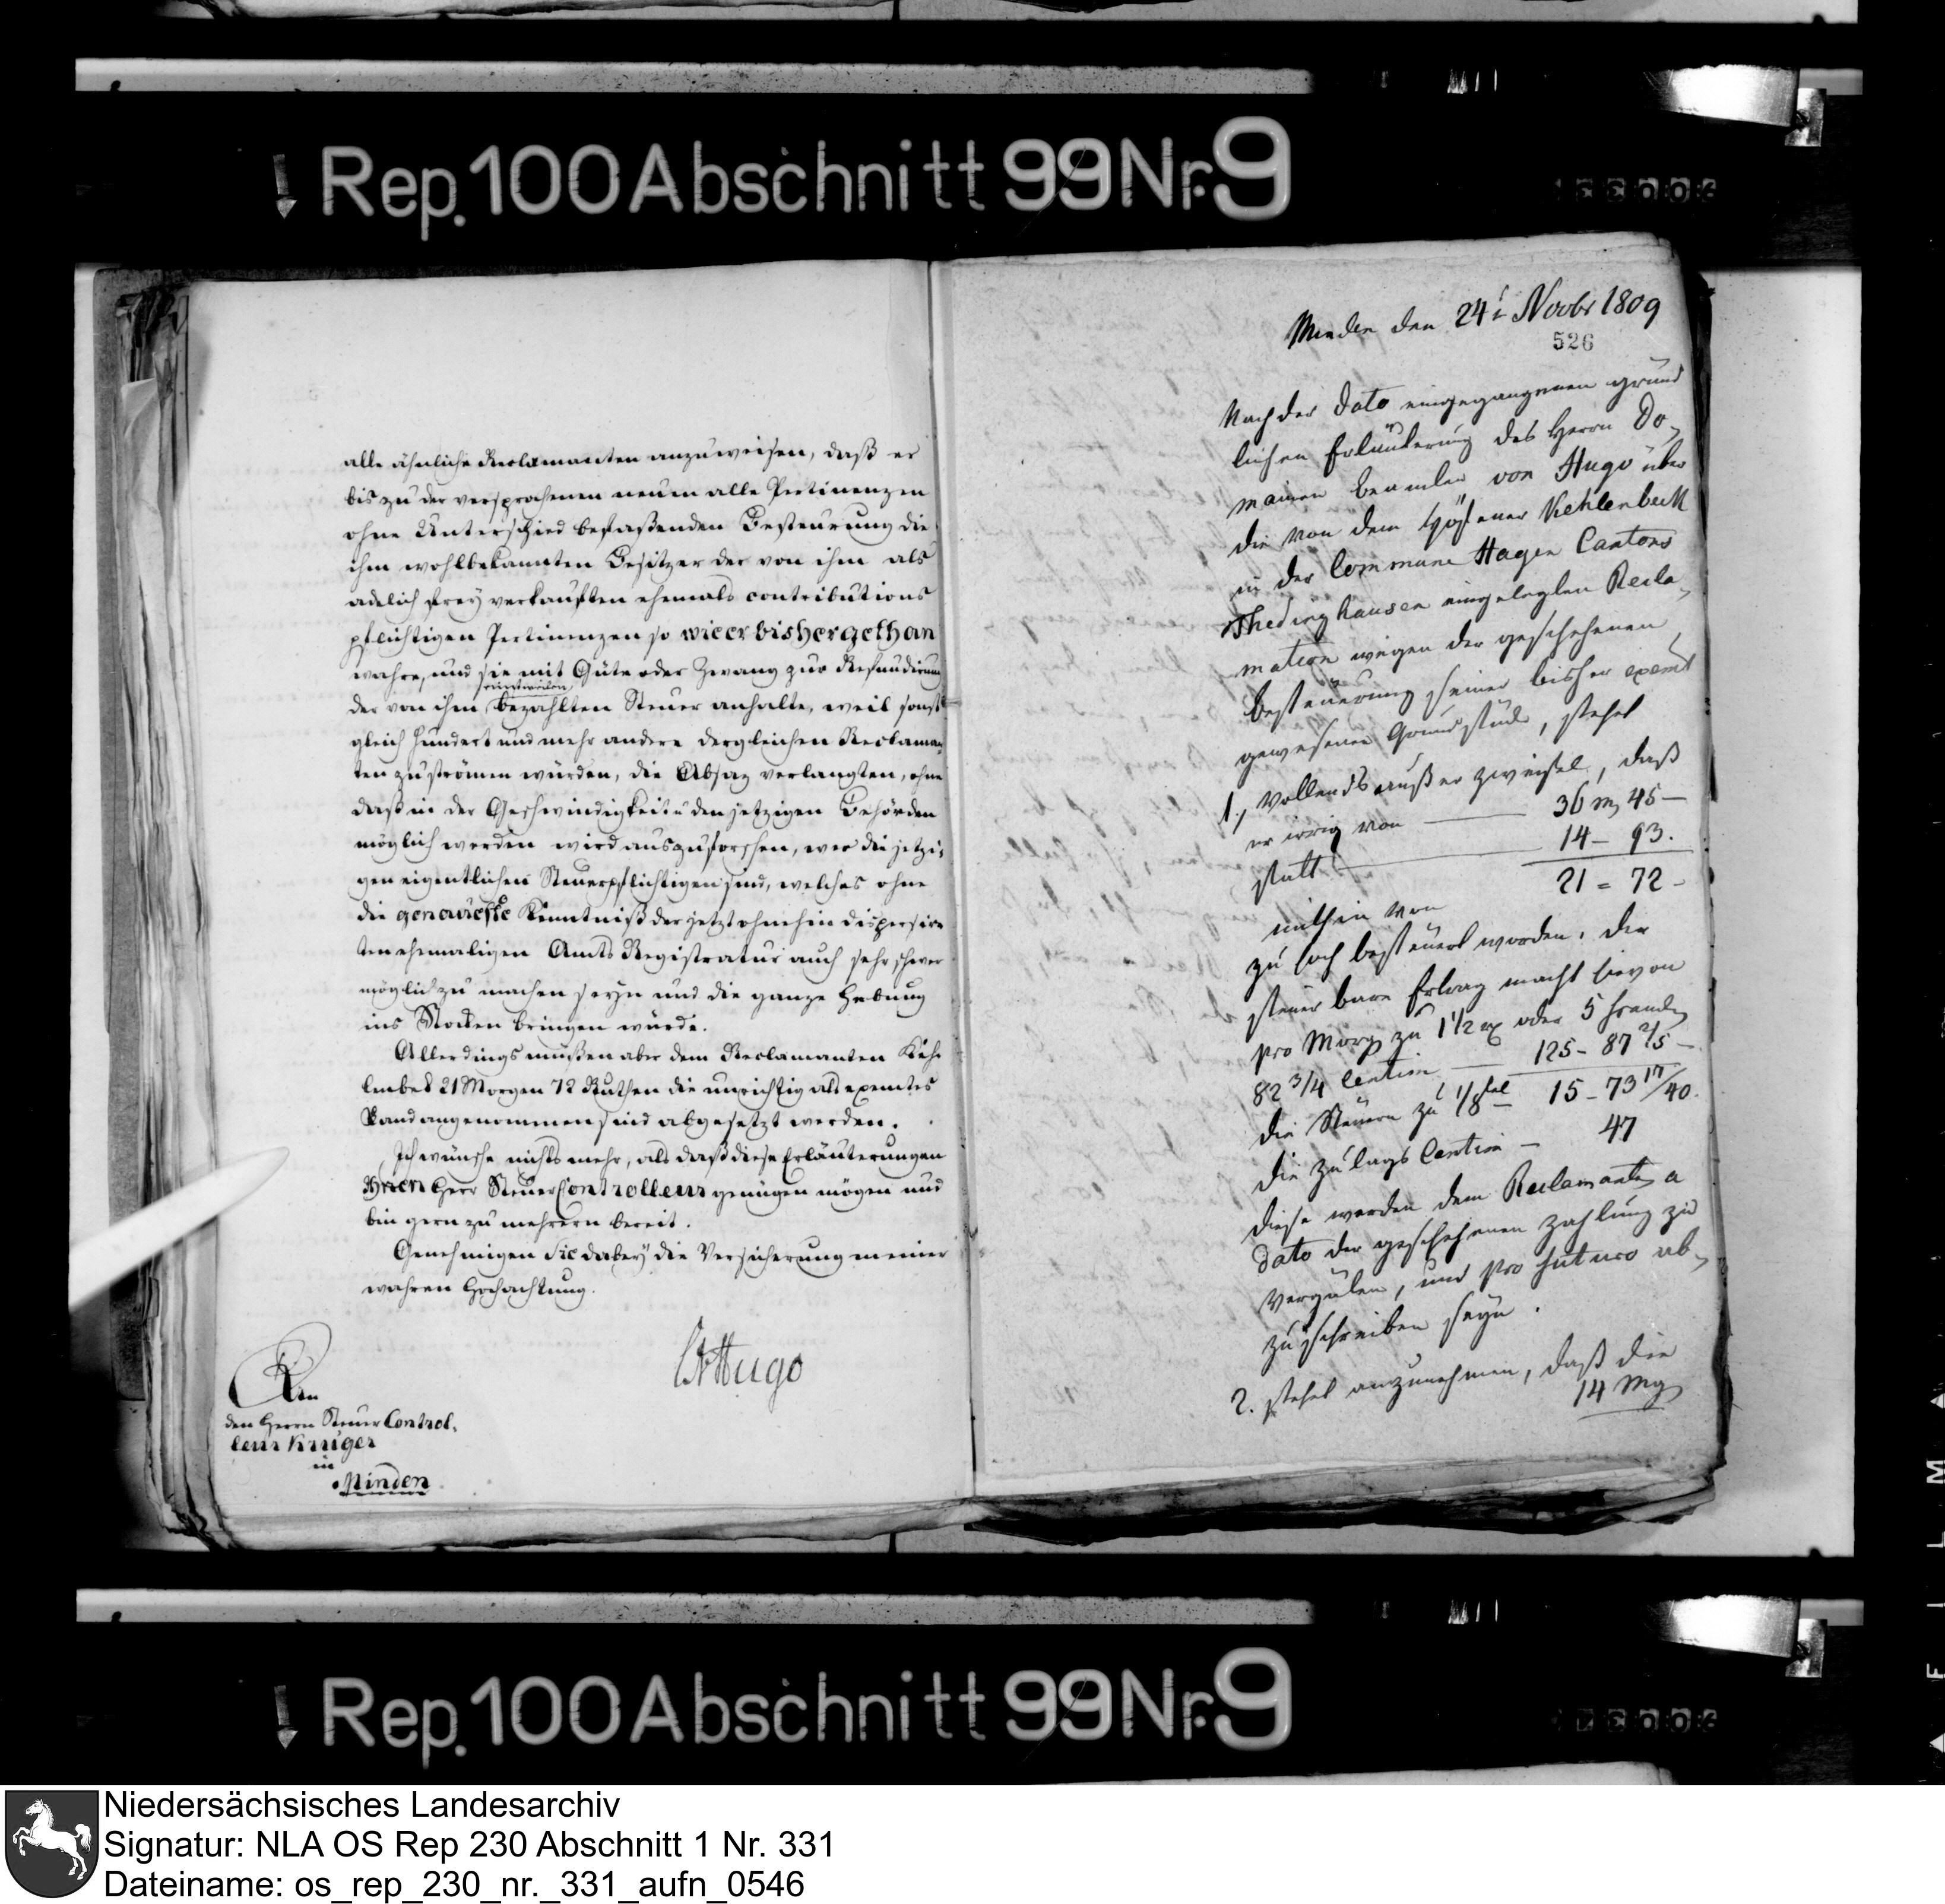 Rep. 100 Abschnitt 99 Nr. 9
alle ähnliche Reclamanten anzuweisen, daß er
bis zu der versprochenen neuen alle Pertinenzen
ohne Unterschied befaßenden Besteurung die
ihm wohlbekannten Besitzer der von ihm als
adelich frey verkauften ehemals contributions
pflichtigen Pertinenzen so wie er bisher gethan
wahre, und sie mit Güte oder Zwang zur Refundirung
einstweilen
der von ihm bezahlten Steuer anhalte, weil sonst
gleich hundert und mehr andere dergleichen Reclaman¬
ten zuströmen würden, die Absaz verlangten, ohne
daß in der Geschwindigkeit den jetzigen Behörden
möglich werden wird auszuforschen, wer die jetzi¬
gen eigentlichen Steuerpflichtigen sind, welches ohne
die genaueste Kenntniß der jetzt ohnehin dispersir¬
ten ehemaligen Amts Registratur auch sehr schwer
möglich zu machen seyn und die ganze Hebung
ins Stocken bringen würde.
Allerdings müßen aber dem Reclamanten Keh¬
lenbek 21 Morgen 72 Ruthen die unrichtig als exemtes
Land angenommen sind abgesetzt werden.
Ich wünsche nichts mehr, als daß diese Erläuterungen
Ihnen Herr Steuer Controlleur genügen mögen und
bin gern zu mehrern bereit.
Genehmigen Sie dabey die Versicherung meiner
wahren Hochachtung.
Hugo
An
den Herrn Steuer Control¬
leur Krüger
in
Minden
Minden den 24t Novbr 1809
526
Nach der dato eingegangenen gründ
lichen Erläuterung des Herrn Do¬
mainen beamten von Hugo über
die von dem Kehlenbeck
in der Commune Hagen Cantons
Thedinghausen eingelegten Recla¬
mation wegen der geschehenen
Besteuerung seiner bisher exemt
gewesenen Grundstücke, stehet
1., vollends außer Zweifel, daß
er irrig von — 36 M, 45 —
statt — 14 — 93.
21 = 72 -
mithin von
zu hoch besteuert worden. Der
steuerbare Ertrag macht hievon
pro Morg zu 1 1/2 oder 5 Franck
82 3/4 Centim — 125 - 87 2/5 —
die Steuern zu 1/8tel 15 - 73 17/40.
die Zulags Centim — 47
diese werden dem Reclamanten a
dato der geschehenen Zahlung zu
vergüten, und pro futuro ab¬
zuschreiben seyn.
2. stehet anzunehmen, daß die
14 Mg
Rep. 100 Abschnitt 99 Nr. 9
Niedersächsisches Landesarchiv
Signatur: NLA OS Rep 230 Abschnitt 1 Nr. 331
Dateiname: os_rep_230_nr._331_aufn_0546